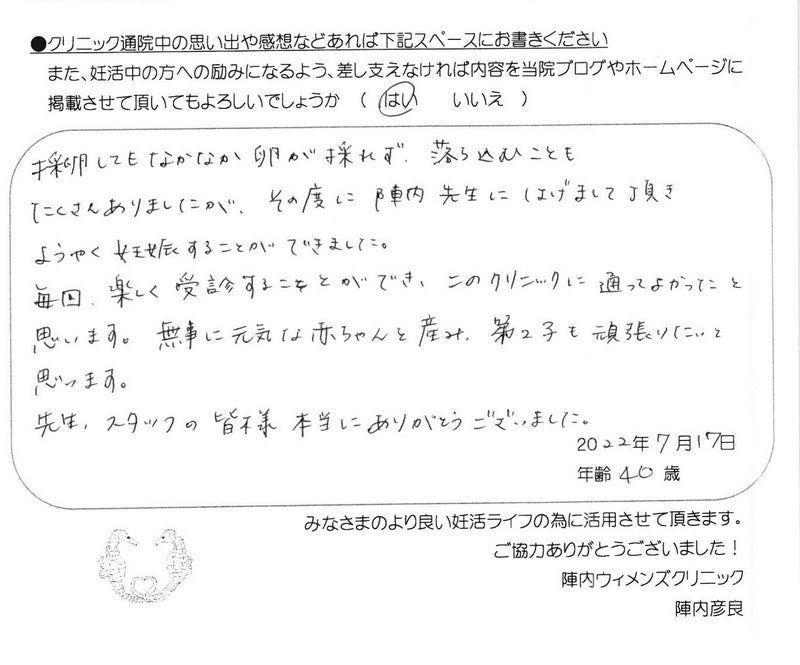 ●クリニック通院中の思い出や感想などあれば下記スペースにお書きください
また、妊活中の方への励みになるよう、差し支えなければ内容を当院ブログやホームページに
掲載させて頂いてもよろしいでしょうか （ はい　いいえ ）
採卵してもなかなか卵が採れず、落ち込むことも
たくさんありましたが、その度に陣内先生にはげまして頂き
ようやく妊娠することができました。
毎回、楽しく受診することができ、このクリニックに通ってよかったと
思います。無事に元気な赤ちゃんを産み、第2子も頑張りたいと
思います。
先生、スタッフの皆様本当にありがとうございました。
2022年7月17日
年齢 40 歳
みなさまのより良い妊活ライフの為に活用させて頂きます。
ご協力ありがとうございました！
陣内ウィメンズクリニック
陣内彦良